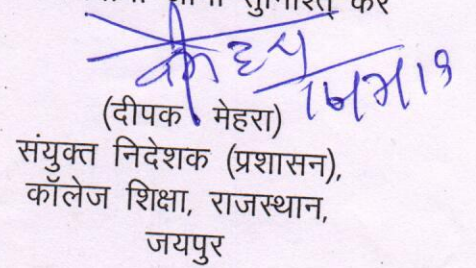 सुनिश्ति करें
(दीपक मेहरा)
संयुक्त निदेशक (प्रशासन),
कॉलेज शिक्षा, राजस्थान,
जयपुर